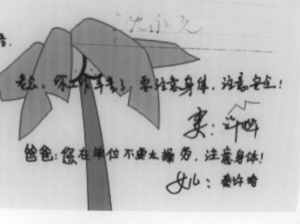 老公,你工作辛苦了,要注意身体,注意安全!
妻:许
爸爸:您在单位不要太操劳,注意身体!
女儿: